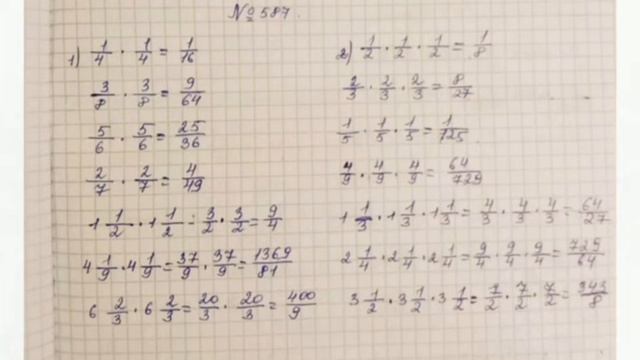 № 587.
1) 1/4 · 1/4 = 1/16
3/8 · 3/8 = 9/64
5/6 · 5/6 = 25/36
2/7 · 2/7 = 4/49
1 1/2 · 1 1/2 = 3/2 · 3/2 = 9/4
4 1/9 · 4 1/9 = 37/9 · 37/9 = 1369/81
6 2/3 · 6 2/3 = 20/3 · 20/3 = 400/9
2) 1/2 · 1/2 · 1/2 = 1/8
2/3 · 2/3 · 2/3 = 8/27
1/5 · 1/5 · 1/5 = 1/125
4/9 · 4/9 · 4/9 = 64/729
1 1/3 · 1 1/3 · 1 1/3 = 4/3 · 4/3 · 4/3 = 64/27
2 1/4 · 2 1/4 · 2 1/4 = 9/4 · 9/4 · 9/4 = 729/64
3 1/2 · 3 1/2 · 3 1/2 = 7/2 · 7/2 · 7/2 = 343/8